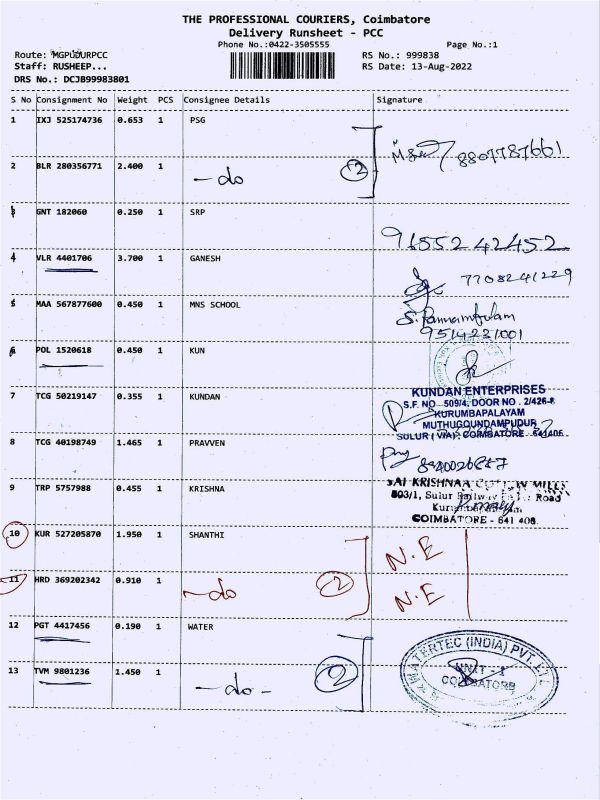 THE PROFESSIONAL COURIERS, Coimbatore
Delivery Runsheet - PCC
Phone No.:0422-3505555
Page No.:1
Route: MGPUDURPCC
RS No.: 999838
Staff: RUSHEEP...
RS Date: 13-Aug-2022
DRS No.: DCJB99983801
S No Consignment No Weight PCS Consignee Details Signature
1 IXJ 525174736 0.653 1 PSG
8807787661
2 BLR 280356771 2.400 1 - do (2)
3 GNT 182060 0.250 1 SRP
9655242452
4 VLR 4401706 3.700 1 GANESH
7708241229
5 MAA 567877600 0.450 1 MNS SCHOOL
9514231001
6 POL 1520618 0.450 1 KUN
7 TCG 50219147 0.355 1 KUNDAN
KUNDAN ENTERPRISES
S.F. NO 509/4, DOOR NO. 2/426-F
KURUMBAPALAYAM
MUTHUGOUNDAMPUDUR
SULUR (VIA), COIMBATORE - 641406
8 TCG 40198749 1.465 1 PRAVVEN
9 TRP 5757988 0.455 1 KRISHNA
SAI KRISHNAA COTTON MILLS
803/1, Sulur Railway Road
COIMBATORE - 641 406.
10 KUR 527205870 1.950 1 SHANTHI N.E
11 HRD 369202342 0.910 1 - do (2) N.E
12 PGT 4417456 0.190 1 WATER
WATERTEC (INDIA) PVT. LTD
UNIT - 1
COIMBATORE
13 TVM 9801236 1.450 1 - do - (2)